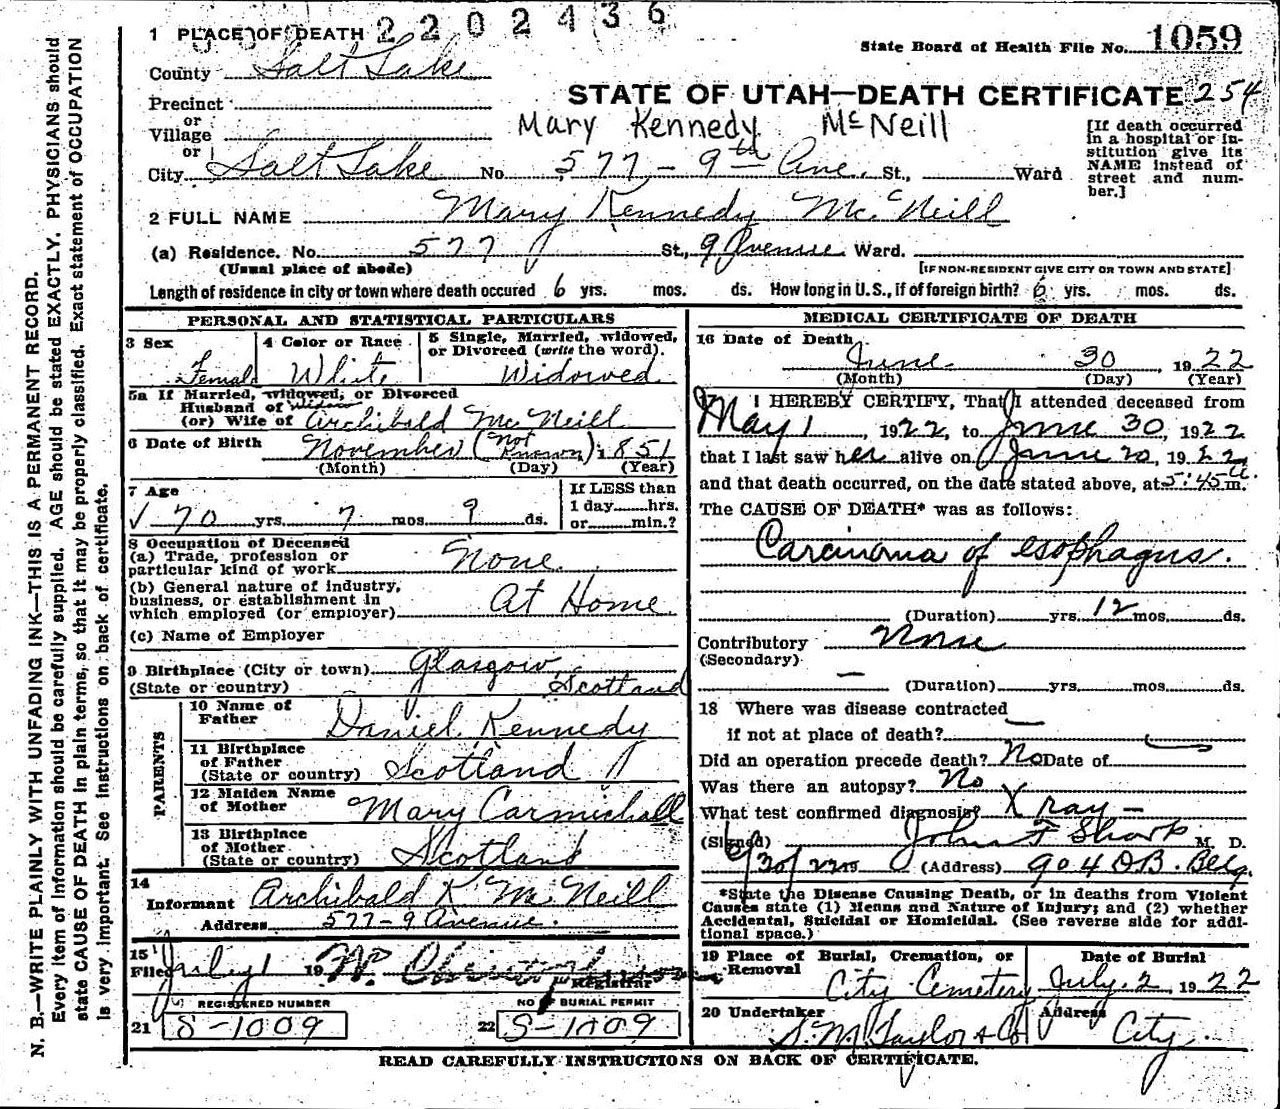 2202436
1 PLACE OF DEATH
State Board of Health File No. 1059
County Salt Lake
STATE OF UTAH—DEATH CERTIFICATE 254
Precinct
or
Village
or
Mary Kennedy McNeill
[If death occurred in a hospital or institution give its NAME instead of street and number.]
City Salt Lake No. 577 - 9th Ave. St., Ward
2 FULL NAME Mary Kennedy McNeill
(a) Residence. No. 577 St., 9 Avenue Ward.
(Usual place of abode) [IF NON-RESIDENT GIVE CITY OR TOWN AND STATE]
Length of residence in city or town where death occured 6 yrs. mos. ds. How long in U.S., if of foreign birth? 6 yrs. mos. ds.
PERSONAL AND STATISTICAL PARTICULARS
3 Sex
Female
4 Color or Race
White
5 Single, Married, widowed, or Divorced (write the word).
Widowed
5a If Married, widowed, or Divorced
Husband of Widow
(or) Wife of Archibald McNeill
6 Date of Birth November (Not Known) 1851
(Month) (Day) (Year)
7 Age
70 yrs. 7 mos. 9 ds.
If LESS than
1 day hrs.
or min.?
8 Occupation of Deceased
(a) Trade, profession or
particular kind of work None
(b) General nature of industry,
business, or establishment in
which employed (or employer) At Home
(c) Name of Employer
9 Birthplace (City or town) Glasgow
(State or country) Scotland
PARENTS
10 Name of
Father Daniel Kennedy
11 Birthplace
of Father
(State or country) Scotland
12 Maiden Name
of Mother Mary Carmichall
13 Birthplace
of Mother
(State or country) Scotland
14
Informant Archibald K. McNeill
Address 577-9 Avenue.
15
Filed July 1 19 W. Registrar
REGISTERED NUMBER
21 S-1009
NO OF BURIAL PERMIT
22 S-1009
MEDICAL CERTIFICATE OF DEATH
16 Date of Death
June 30, 1922
(Month) (Day) (Year)
17 I HEREBY CERTIFY, That I attended deceased from
May 1, 1922, to June 30, 1922
that I last saw her alive on June 20, 1922
and that death occurred, on the date stated above, at 5:45 m.
The CAUSE OF DEATH* was as follows:
Carcinoma of esophagus.
(Duration) yrs. 12 mos. ds.
Contributory None
(Secondary)
(Duration) yrs. mos. ds.
18 Where was disease contracted
if not at place of death?
Did an operation precede death? No Date of
Was there an autopsy? No
What test confirmed diagnosis? X ray -
(Signed) John F Sharp M. D.
6/30/22 (Address) 904 D.B. Bldg.
*State the Disease Causing Death, or in deaths from Violent
Causes state (1) Menns and Nature of Injury; and (2) whether
Accidental, Suicidal or Homicidal. (See reverse side for addi-
tional space.)
19 Place of Burial, Cremation, or
Removal
City Cemetery
Date of Burial
July 2 1922
20 Undertaker
S. M. Taylor & Co
Address
City
READ CAREFULLY INSTRUCTIONS ON BACK OF CERTIFICATE.
N. B.—WRITE PLAINLY WITH UNFADING INK—THIS IS A PERMANENT RECORD.
Every item of information should be carefully supplied. AGE should be stated EXACTLY. PHYSICIANS should
state CAUSE OF DEATH in plain terms, so that it may be properly classified. Exact statement of OCCUPATION
is very important. See instructions on back of certificate.